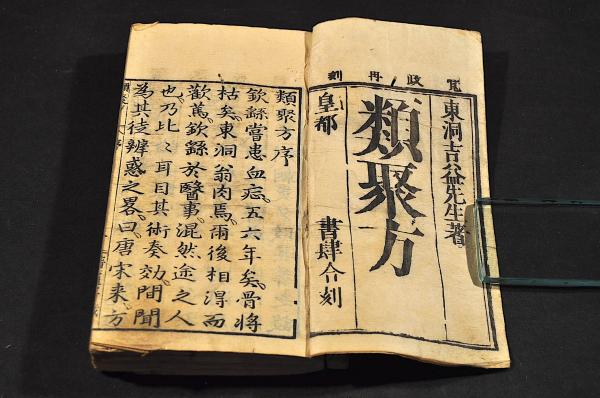 寛政再刻
東洞吉益先生著
類聚方
皇都 書肆合刻
類聚方序
欽繇嘗患血痣五六年矣骨將
枯矣東洞翁肉焉爾後相得而
歡篤欽繇於醫事混然途之人
也乃比〻耳目其術奏効間聞
為其徒辨惑之畧曰唐宋来方